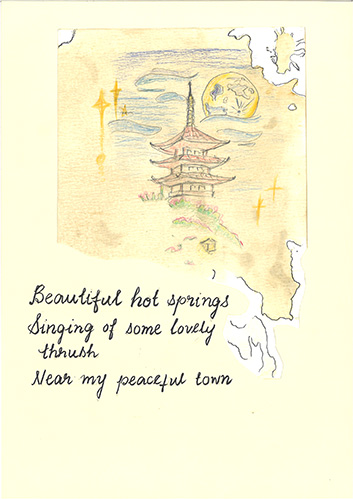 Beautiful hot springs
Singing of some lovely
thrush
Near my peaceful town